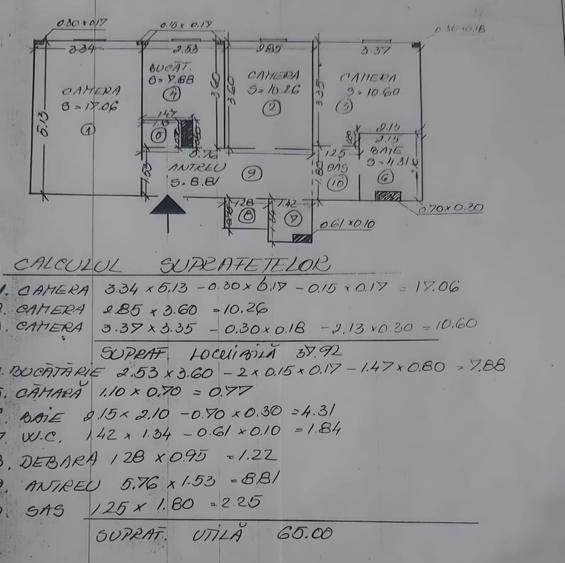 0.30 x 0.17
0.15 x 0.17
0.30 x 0.18
3.34
2.53
2.85
3.37
CAMERA
S = 17.06
1
BUCĂT.
S = 7.88
4
CAMERA
S = 10.26
2
CAMERA
S = 10.60
3
5.13
3.60
3.60
3.35
1.47
5
5.76
ANTREU
S. 8.81
9
1.53
1.80
1.25
SAS
10
2.15
2.15
BAIE
S = 4.31
6
1.28
1.42
8
7
0.70 x 0.30
0.61 x 0.10
CALCULUL SUPRAFEȚELOR
CAMERA 3.34 x 5.13 - 0.30 x 0.17 - 0.15 x 0.17 = 17.06
CAMERA 2.85 x 3.60 = 10.26
CAMERA 3.37 x 3.35 - 0.30 x 0.18 - 2.13 x 0.30 = 10.60
SUPRAF. LOCUIBILĂ 37.92
BUCĂTĂRIE 2.53 x 3.60 - 2 x 0.15 x 0.17 - 1.47 x 0.80 = 7.88
CĂMARĂ 1.10 x 0.70 = 0.77
BAIE 2.15 x 2.10 - 0.70 x 0.30 = 4.31
W.C. 1.42 x 1.34 - 0.61 x 0.10 = 1.84
DEBARA 1.28 x 0.95 = 1.22
ANTREU 5.76 x 1.53 = 8.81
SAS 1.25 x 1.80 = 2.25
SUPRAF. UTILĂ 65.00